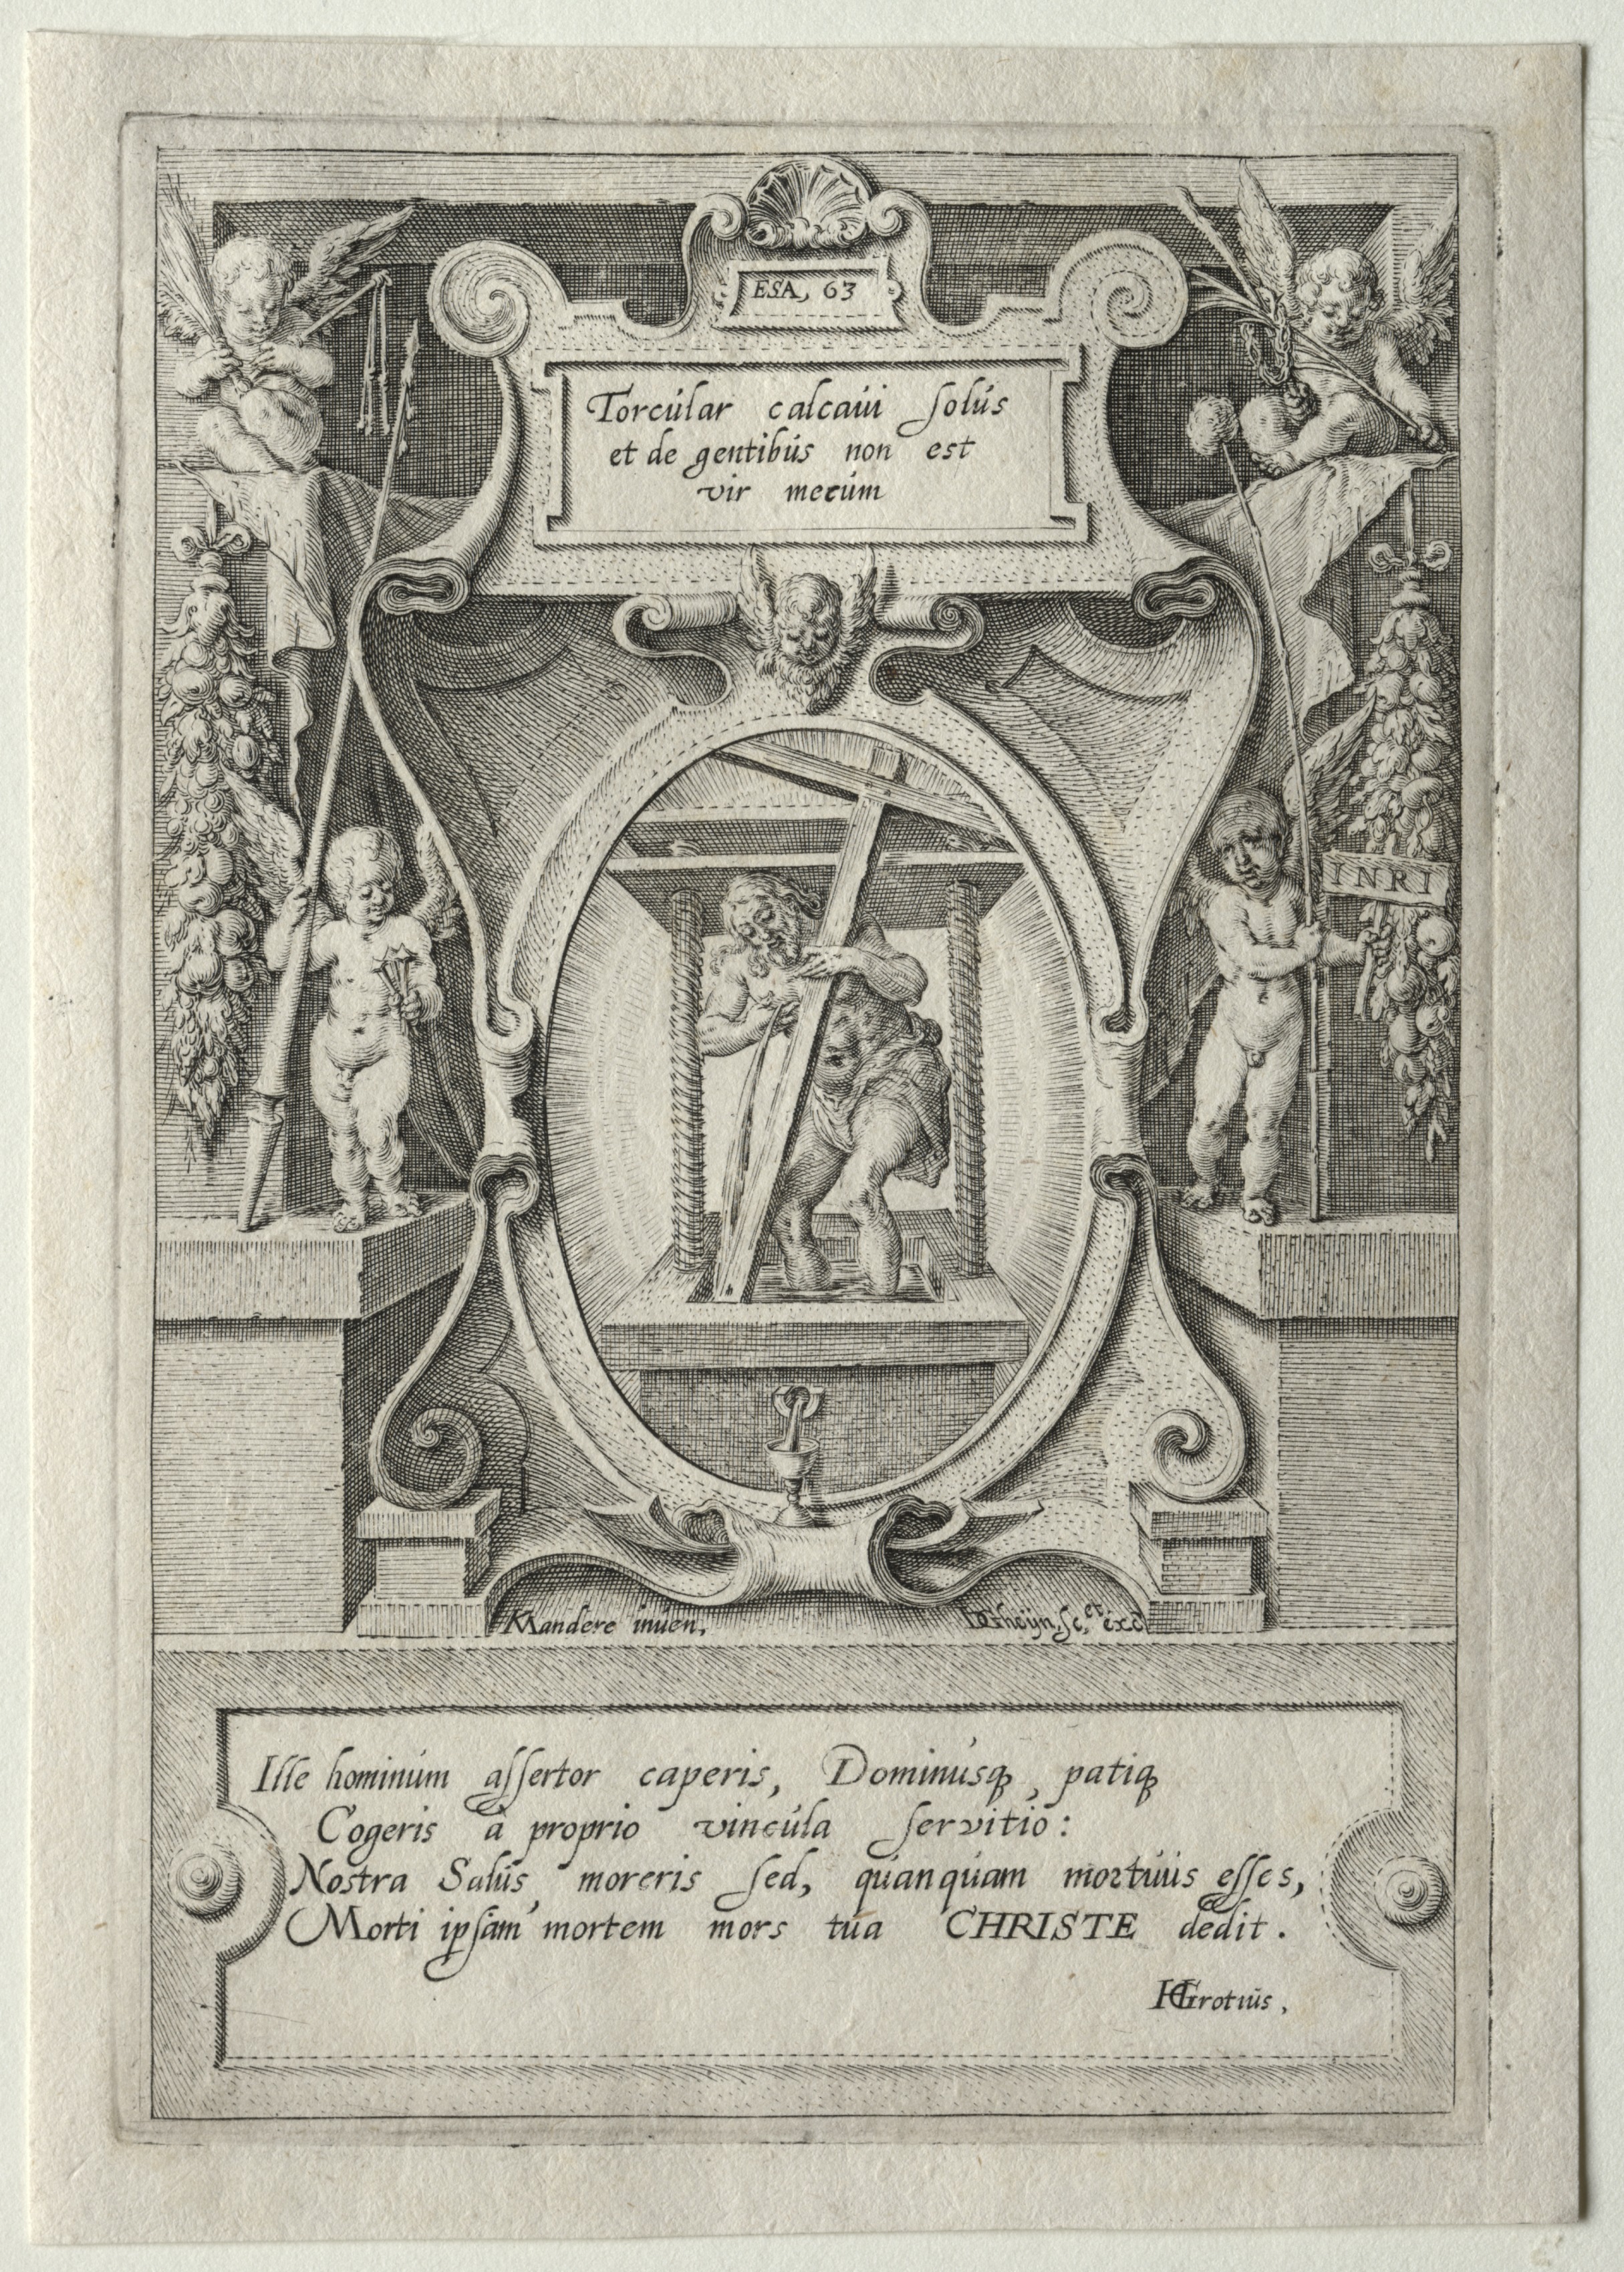 ESA, 63
Torcular calcaui solus
et de gentibus non est
vir mecum
INRI
KMandere inuen.
DGheijn. sc. et exc
Ille hominum assertor caperis, Dominusq, patiq
Cogeris à proprio vincula servitio:
Nostra Salus moreris sed, quanquam mortuus esses,
Morti ipsam mortem mors tua CHRISTE dedit.
HGrotius,